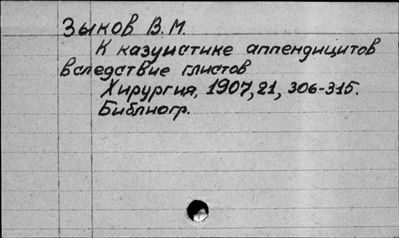 Зыков В.М.
К казуистике аппендицитов
вследствие глистов
Хирургия, 1907, 21, 306-315.
Библиогр.